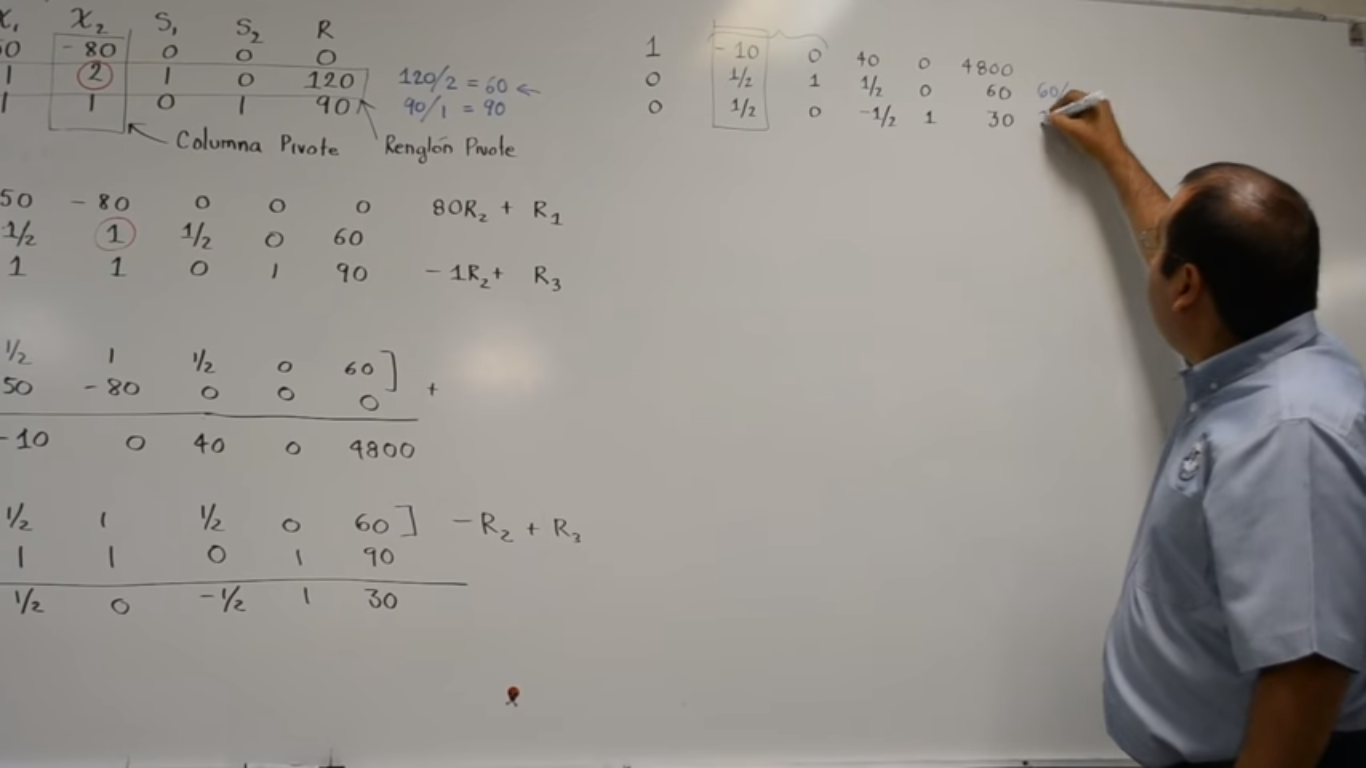 X₁ X₂ S₁ S₂ R
50 -80 0 0 0
1 2 1 0 120 120/2 = 60 ←
1 1 0 1 90 90/1 = 90
Columna Pivote Renglón Pivote
50 -80 0 0 0 80R₂ + R₁
1/2 1 1/2 0 60
1 1 0 1 90 -1R₂ + R₃
1/2 1 1/2 0 60] +
50 -80 0 0 0
-10 0 40 0 4800
1/2 1 1/2 0 60] -R₂ + R₃
1 1 0 1 90
1/2 0 -1/2 1 30
1 -10 0 40 0 4800
0 1/2 1 1/2 0 60 60/
0 1/2 0 -1/2 1 30